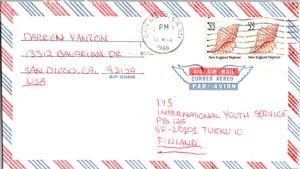 DARREN YANTON
13312 BAVARIAN DR.
SAN DIEGO, CA. 92129
USA
ZIP CODE
PM
1986
22 USA
22 USA
New England Neptune
New England Neptune
VIA AIR MAIL
CORREO AEREO
PAR AVION
IYS
INTERNATIONAL YOUTH SERVICE
PB 125
SF-20101 TURKU 10
FINLAND